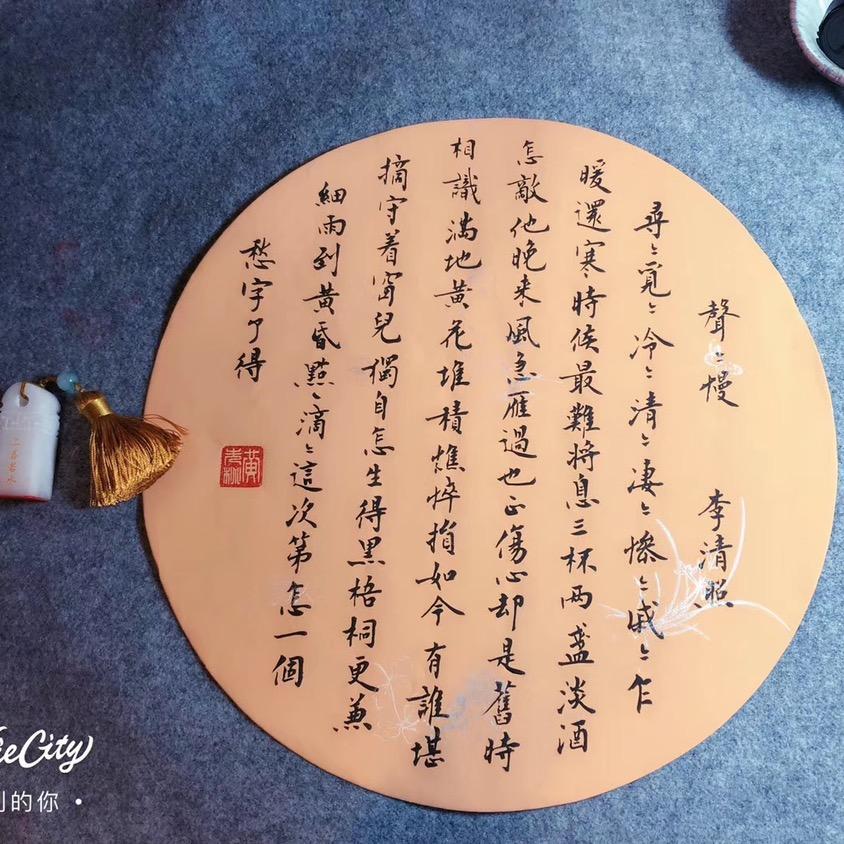 聲〻慢 李清照
尋〻覓〻冷〻清〻凄〻慘〻戚〻乍
暖還寒時候最難將息三杯两盏淡酒
怎敵他晚来風急雁過也正傷心却是舊時
相識满地黄花堆積憔悴損如今有誰堪
摘守着窗兒獨自怎生得黑梧桐更兼
細雨到黄昏點〻滴〻這次第怎一個
愁字了得
上善若水
City
的你 •